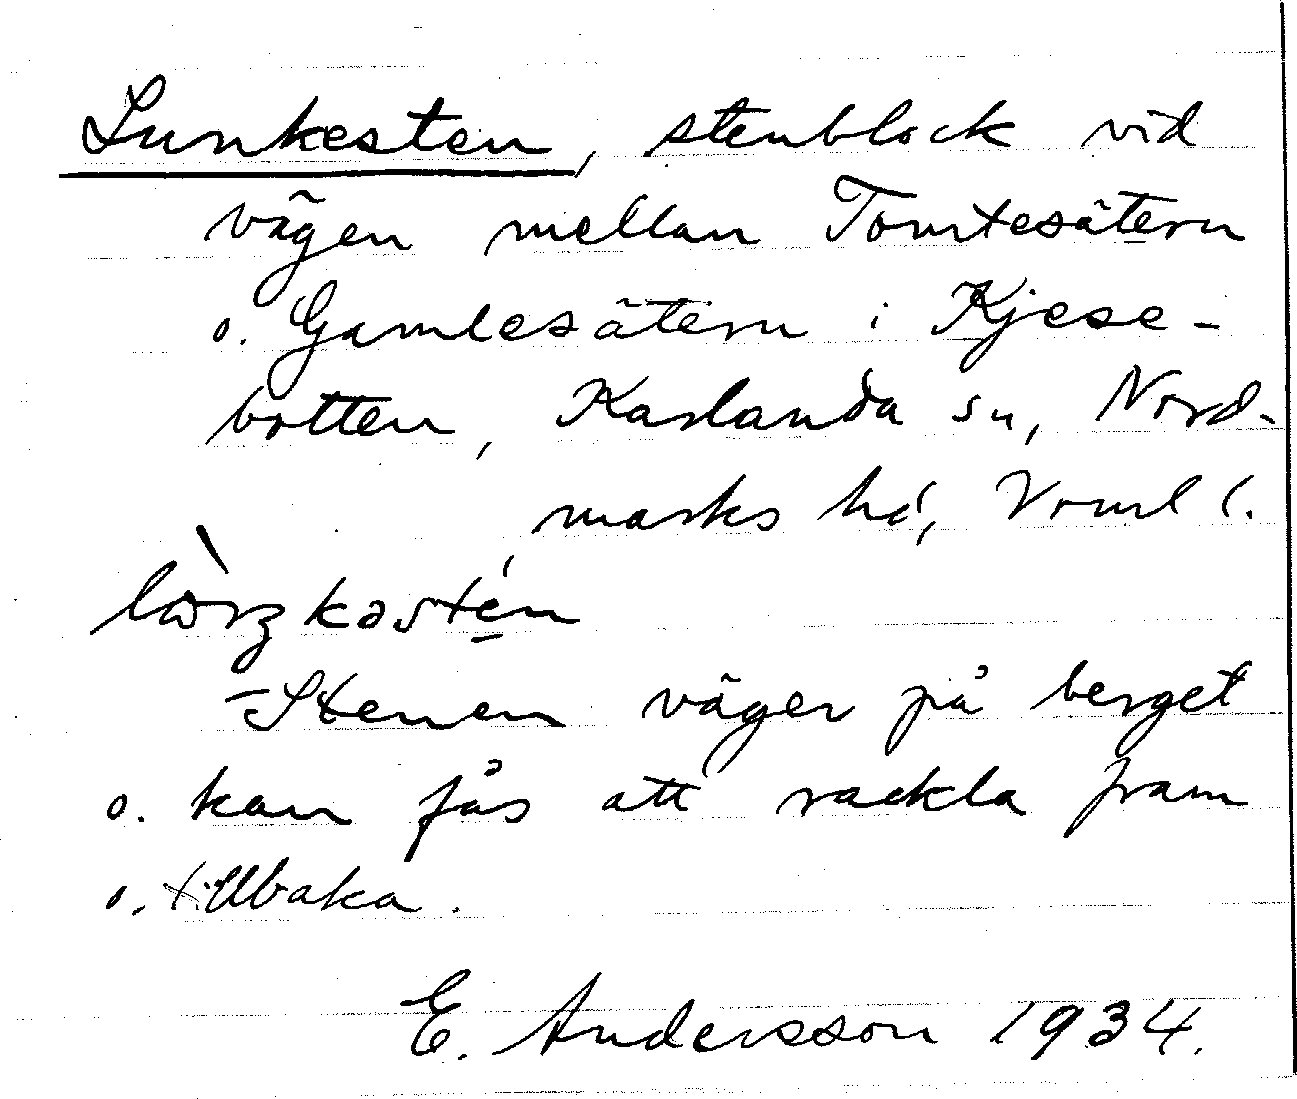 Lunkesten, stenblock vid
vägen mellan Tomtesätern
o. Gamlesätern i Kjese-
botten, Karlanda sn, Nord-
marks hd, Vrml l.
Stenen väger på berget
o. kan fås att rackla fram
o. tillbaka.
E. Andersson 1934.